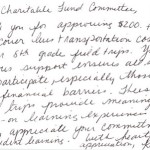 Charitable Fund Committee,
you for approving $200.
cover bus transportation cos
8th grade field trips. Yo
s support ensures all s
participate especially those
financial barriers. These
trips provide meaning
- on learning experien
appreciate your committ
dent learning. With heart
appreciation,